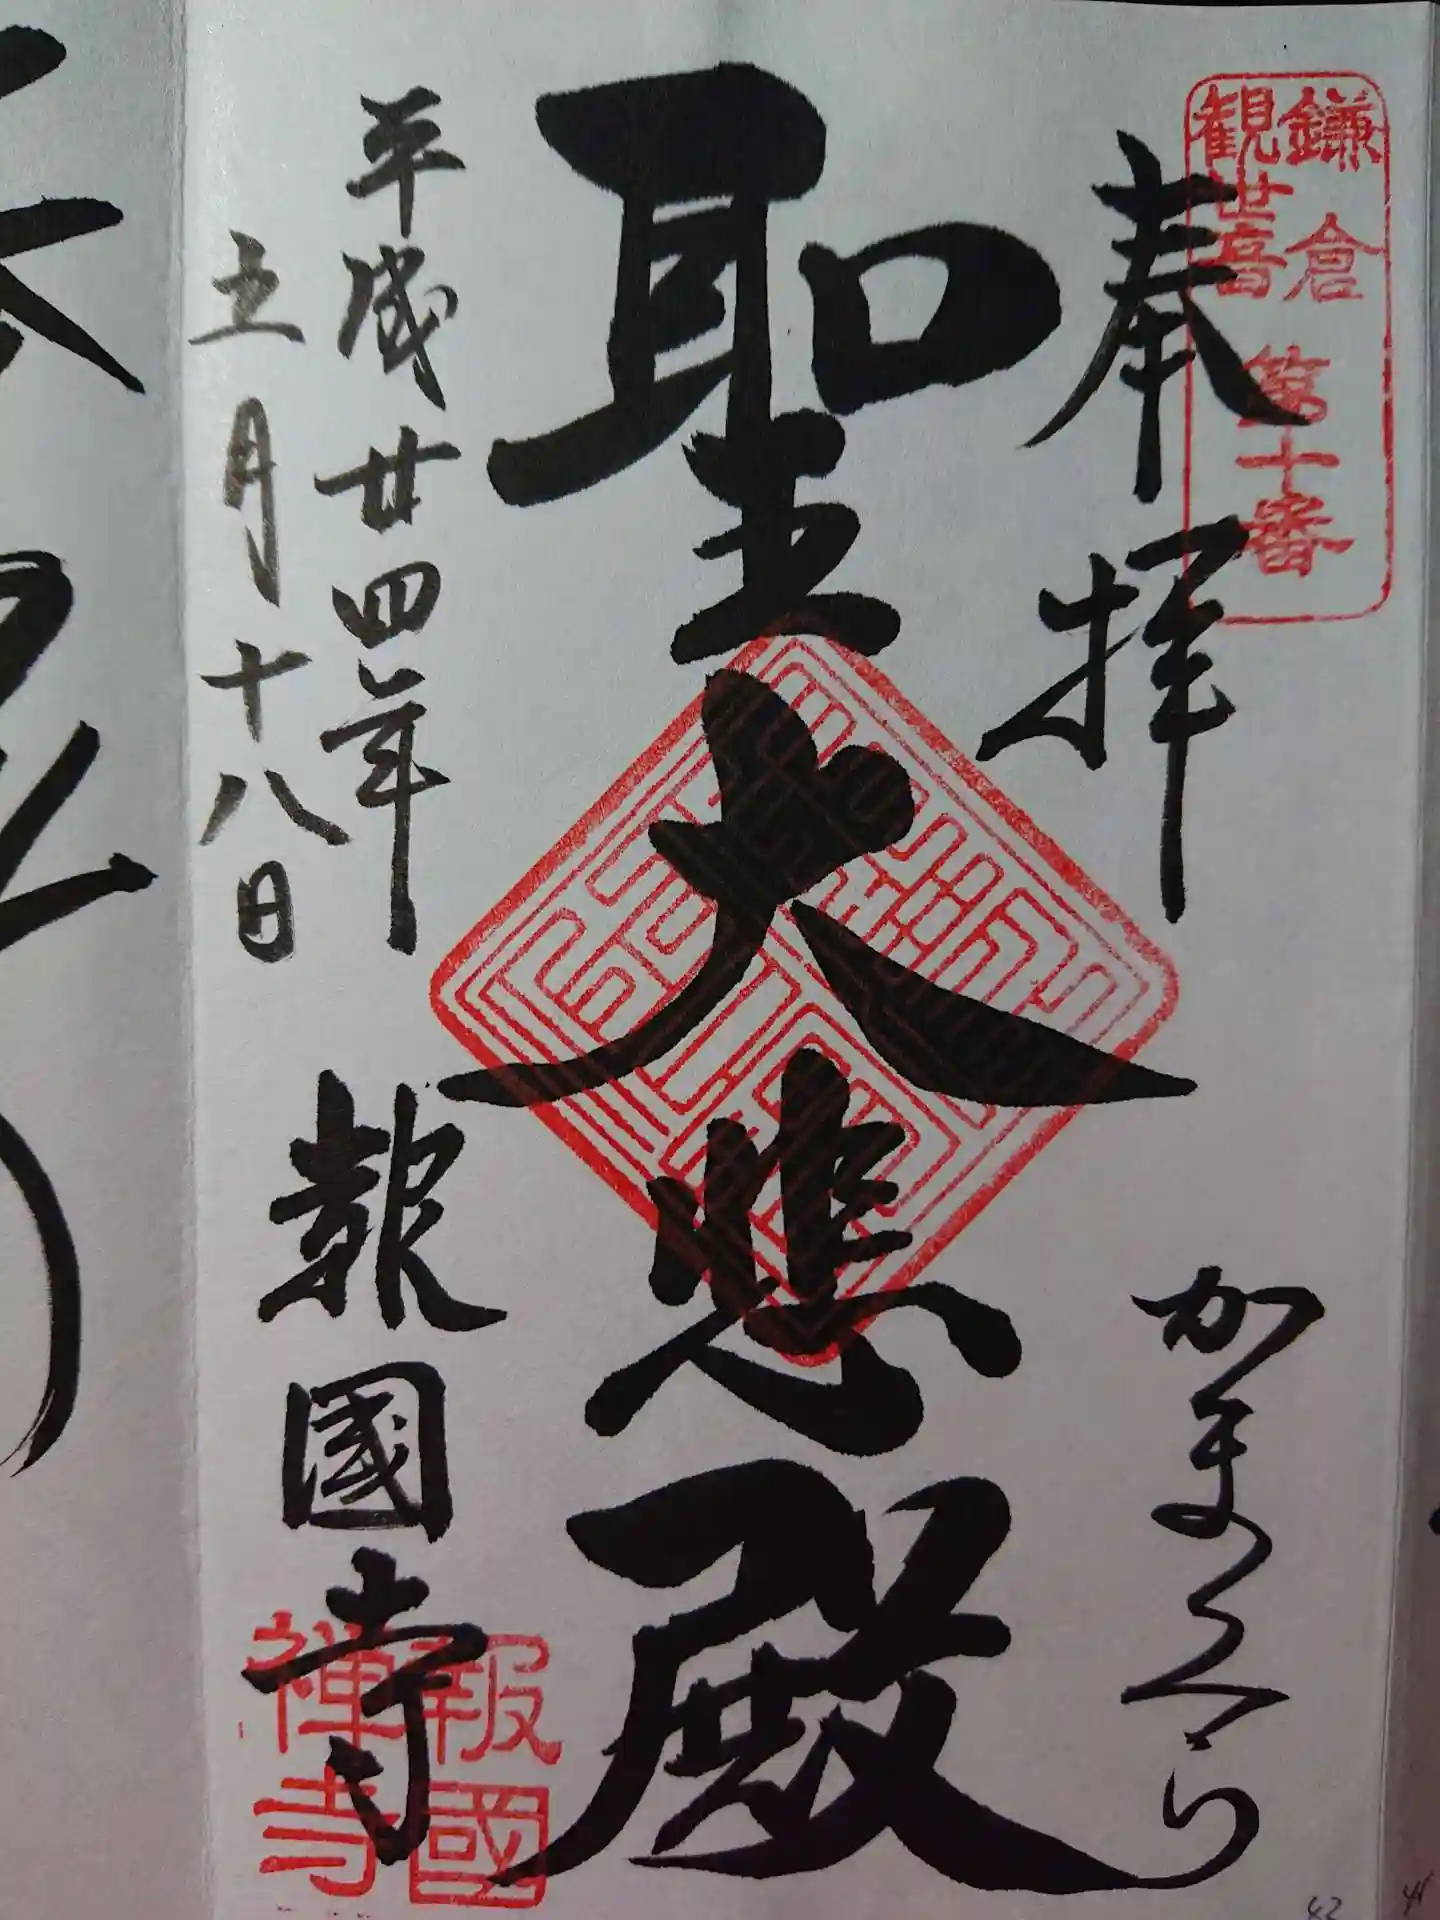 鎌倉
観世音
第十番
奉拝
かまくら
聖大悲殿
平成廿四年
五月十八日
報國寺
報國
禅寺
42